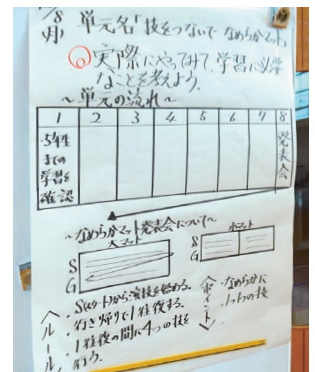 /8
(月) 単元名「技をつないで なめらかマット」
◎実際にやってみて、学習に必要
なことを考えよう。
〜単元の流れ〜
1 2 3 4 5 6 7 8
・5年生
までの
学習を
確認
発表会
〜なめらかマット発表会について〜
大マット
小マット
S
G
S
G
〈ルール〉
・S(スタート)から演技を始める。
・行き帰りで1往復する。
・1往復の間に4つの技を
行う。
〈ポイント〉
・なめらかに
・1つ1つの技